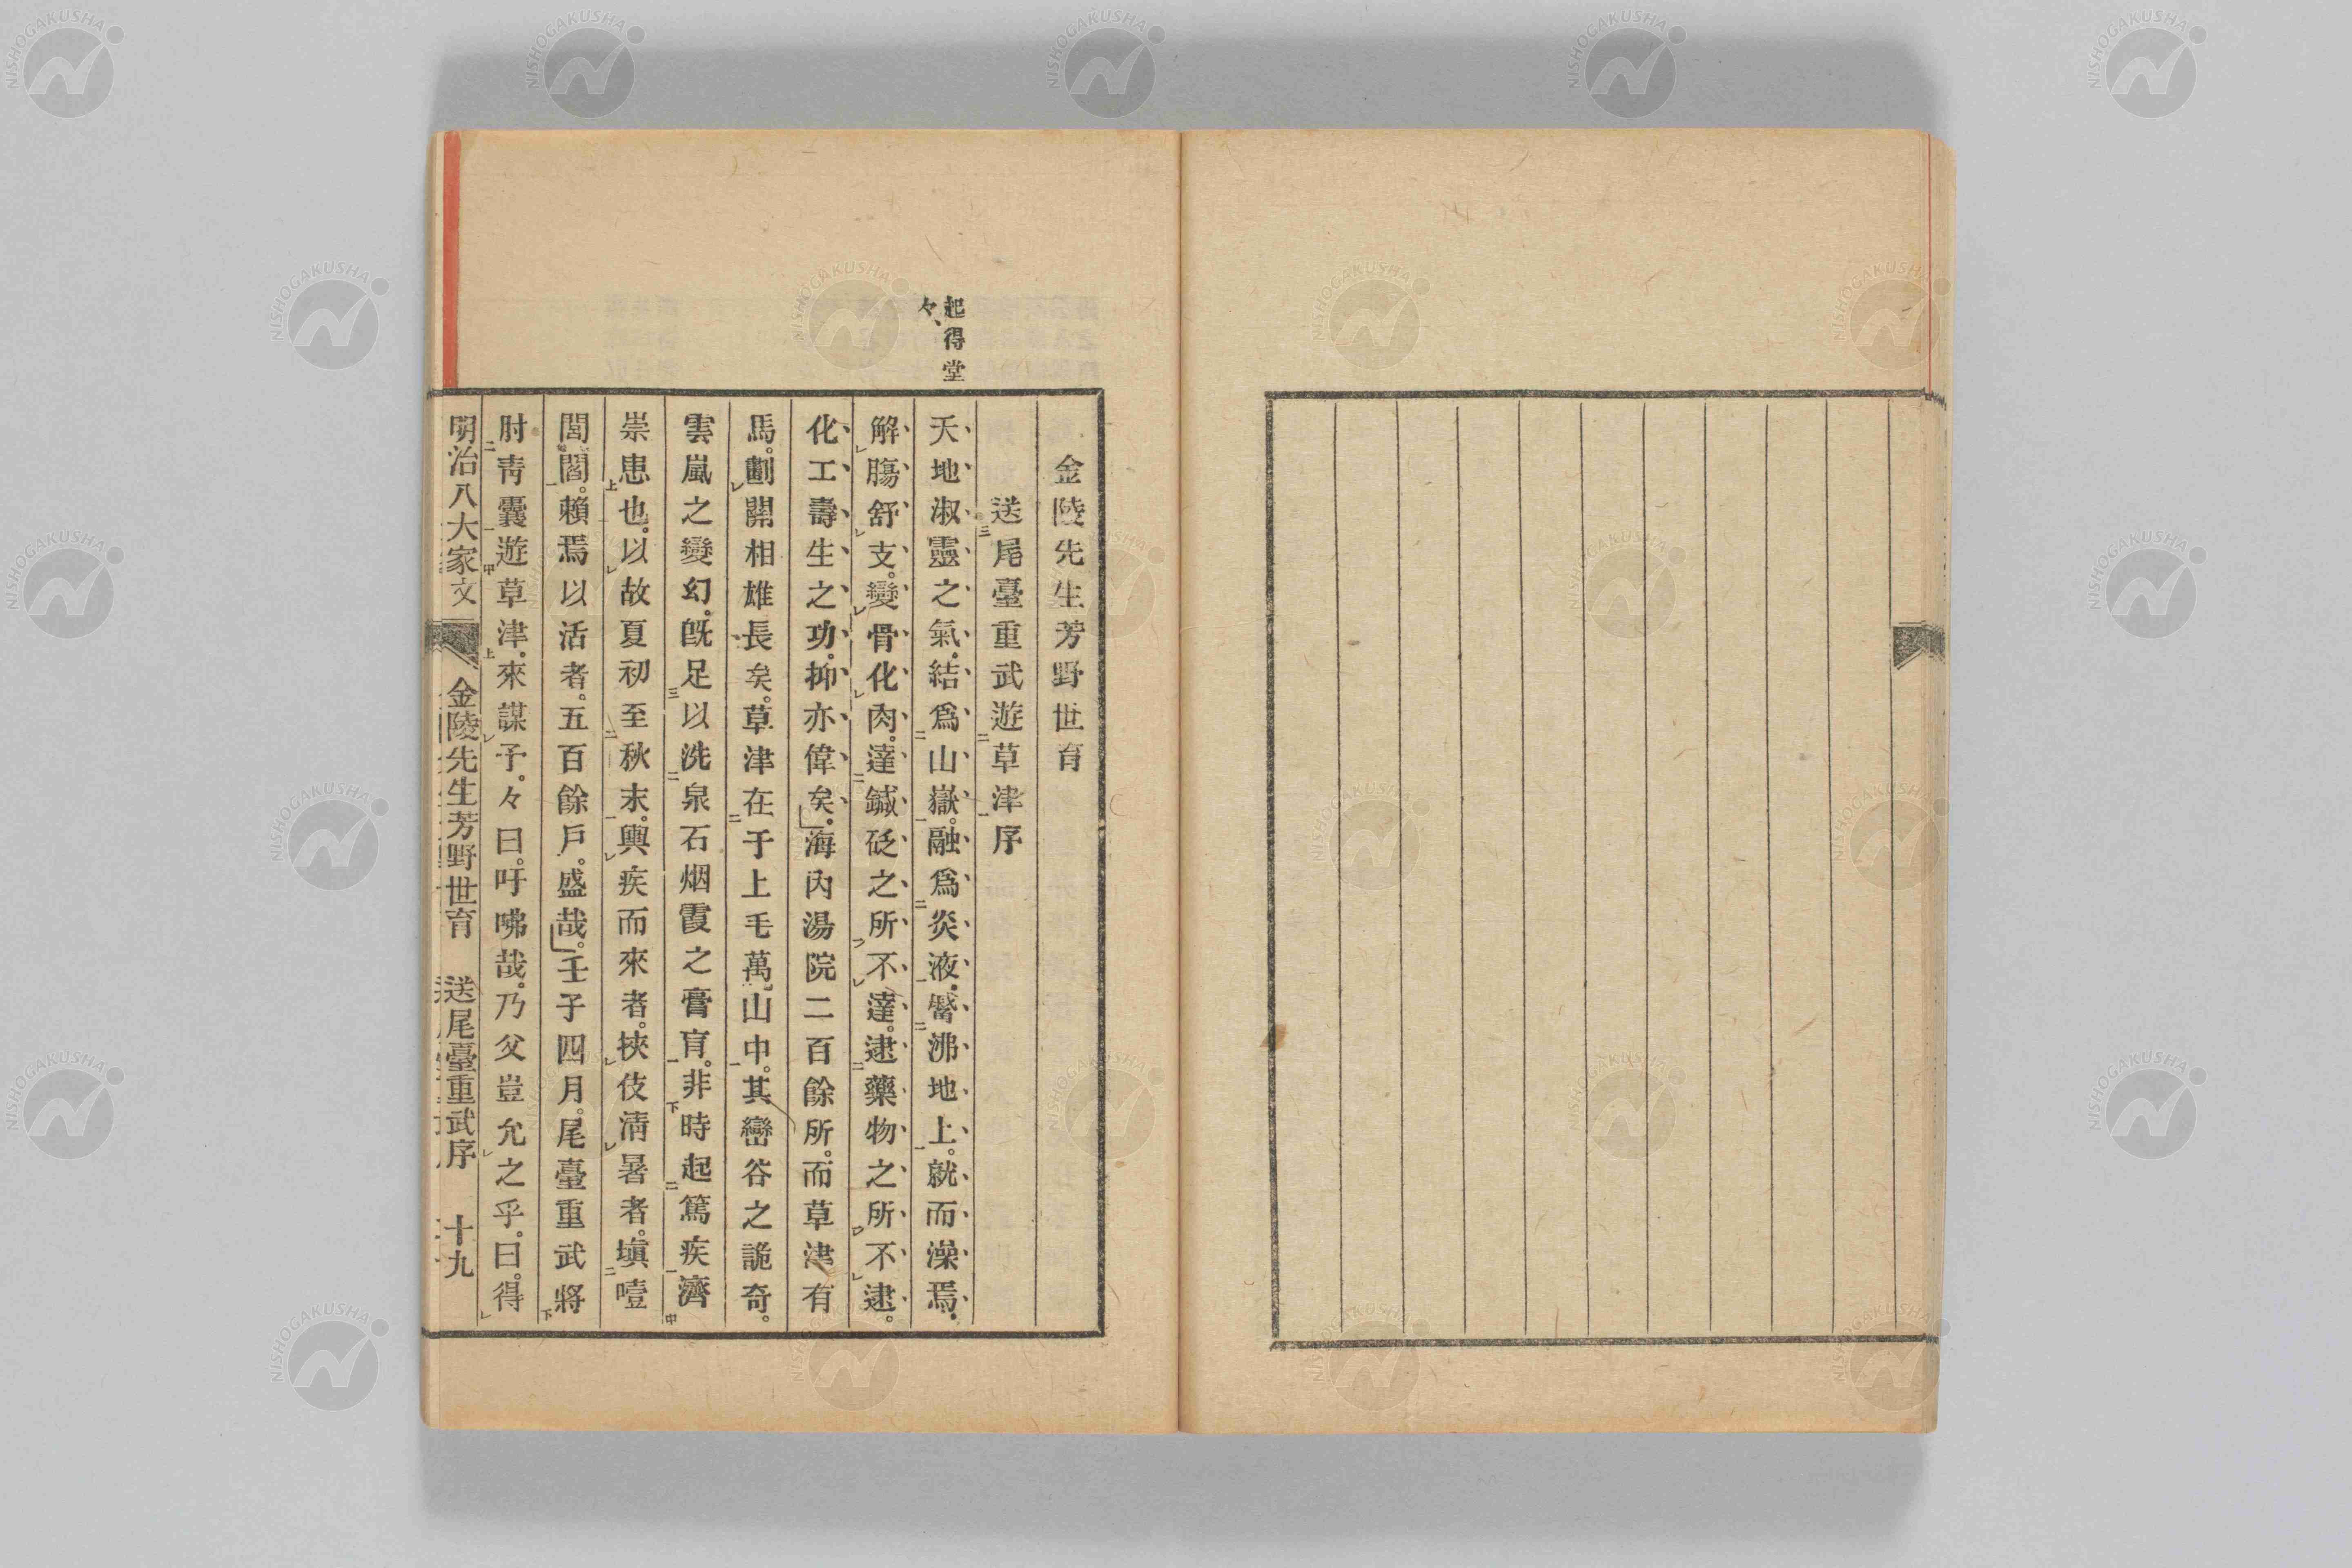 起得堂
々、
金陵先生芳野世育
送尾臺重武遊草津序
天地淑靈之氣。結爲山嶽。融爲炎液。觱沸地上。就而澡焉。
解膓舒支。變骨化肉。達鍼砭之所不達。逮藥物之所不逮。
化工壽生之功。抑亦偉矣。海內湯院二百餘所。而草津有
馬。劃開相雄長矣。草津在于上毛萬山中。其巒谷之詭奇。
雲嵐之變幻。旣足以洗泉石烟霞之膏肓。非時起篤疾濟
崇患也。以故夏初至秋末。輿疾而來者。挾伎淸暑者。塡噎
閭閻。賴焉以活者。五百餘戶。盛哉。壬子四月。尾臺重武將
肘靑囊遊草津。來謀予。々曰。吁咈哉。乃父豈允之乎。曰。得
明治八大家文 金陵先生芳野世育 送尾臺重武序 十九
NISHOGAKUSHA